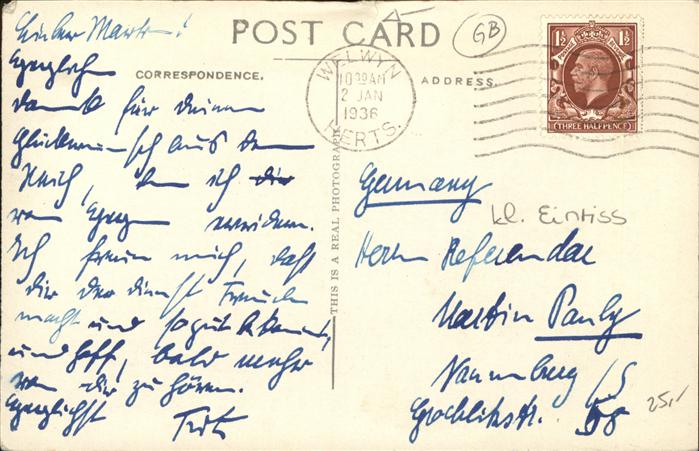 Lieber Martin!
Herzlich
dank für Deinen
Glückwunsch aus dem
Reich, den ich die
von Herzen erwidere.
Ich freue mich, daß
dir der dienst Freude
macht und so gut bekommt,
und hoffe, bald mehr
von dir zu hören.
Herzlichst
Fritz
POST CARD
GB
CORRESPONDENCE.
ADDRESS
THIS IS A REAL PHOTOGRAPH
WELWYN
2 JAN
1936
HERTS.
1½ 1½
POSTAGE REVENUE
THREE HALFPENCE
Germany
kl. Einriss
Herrn Referendar
Martin Pauly
Naumburg /S
58
25,-